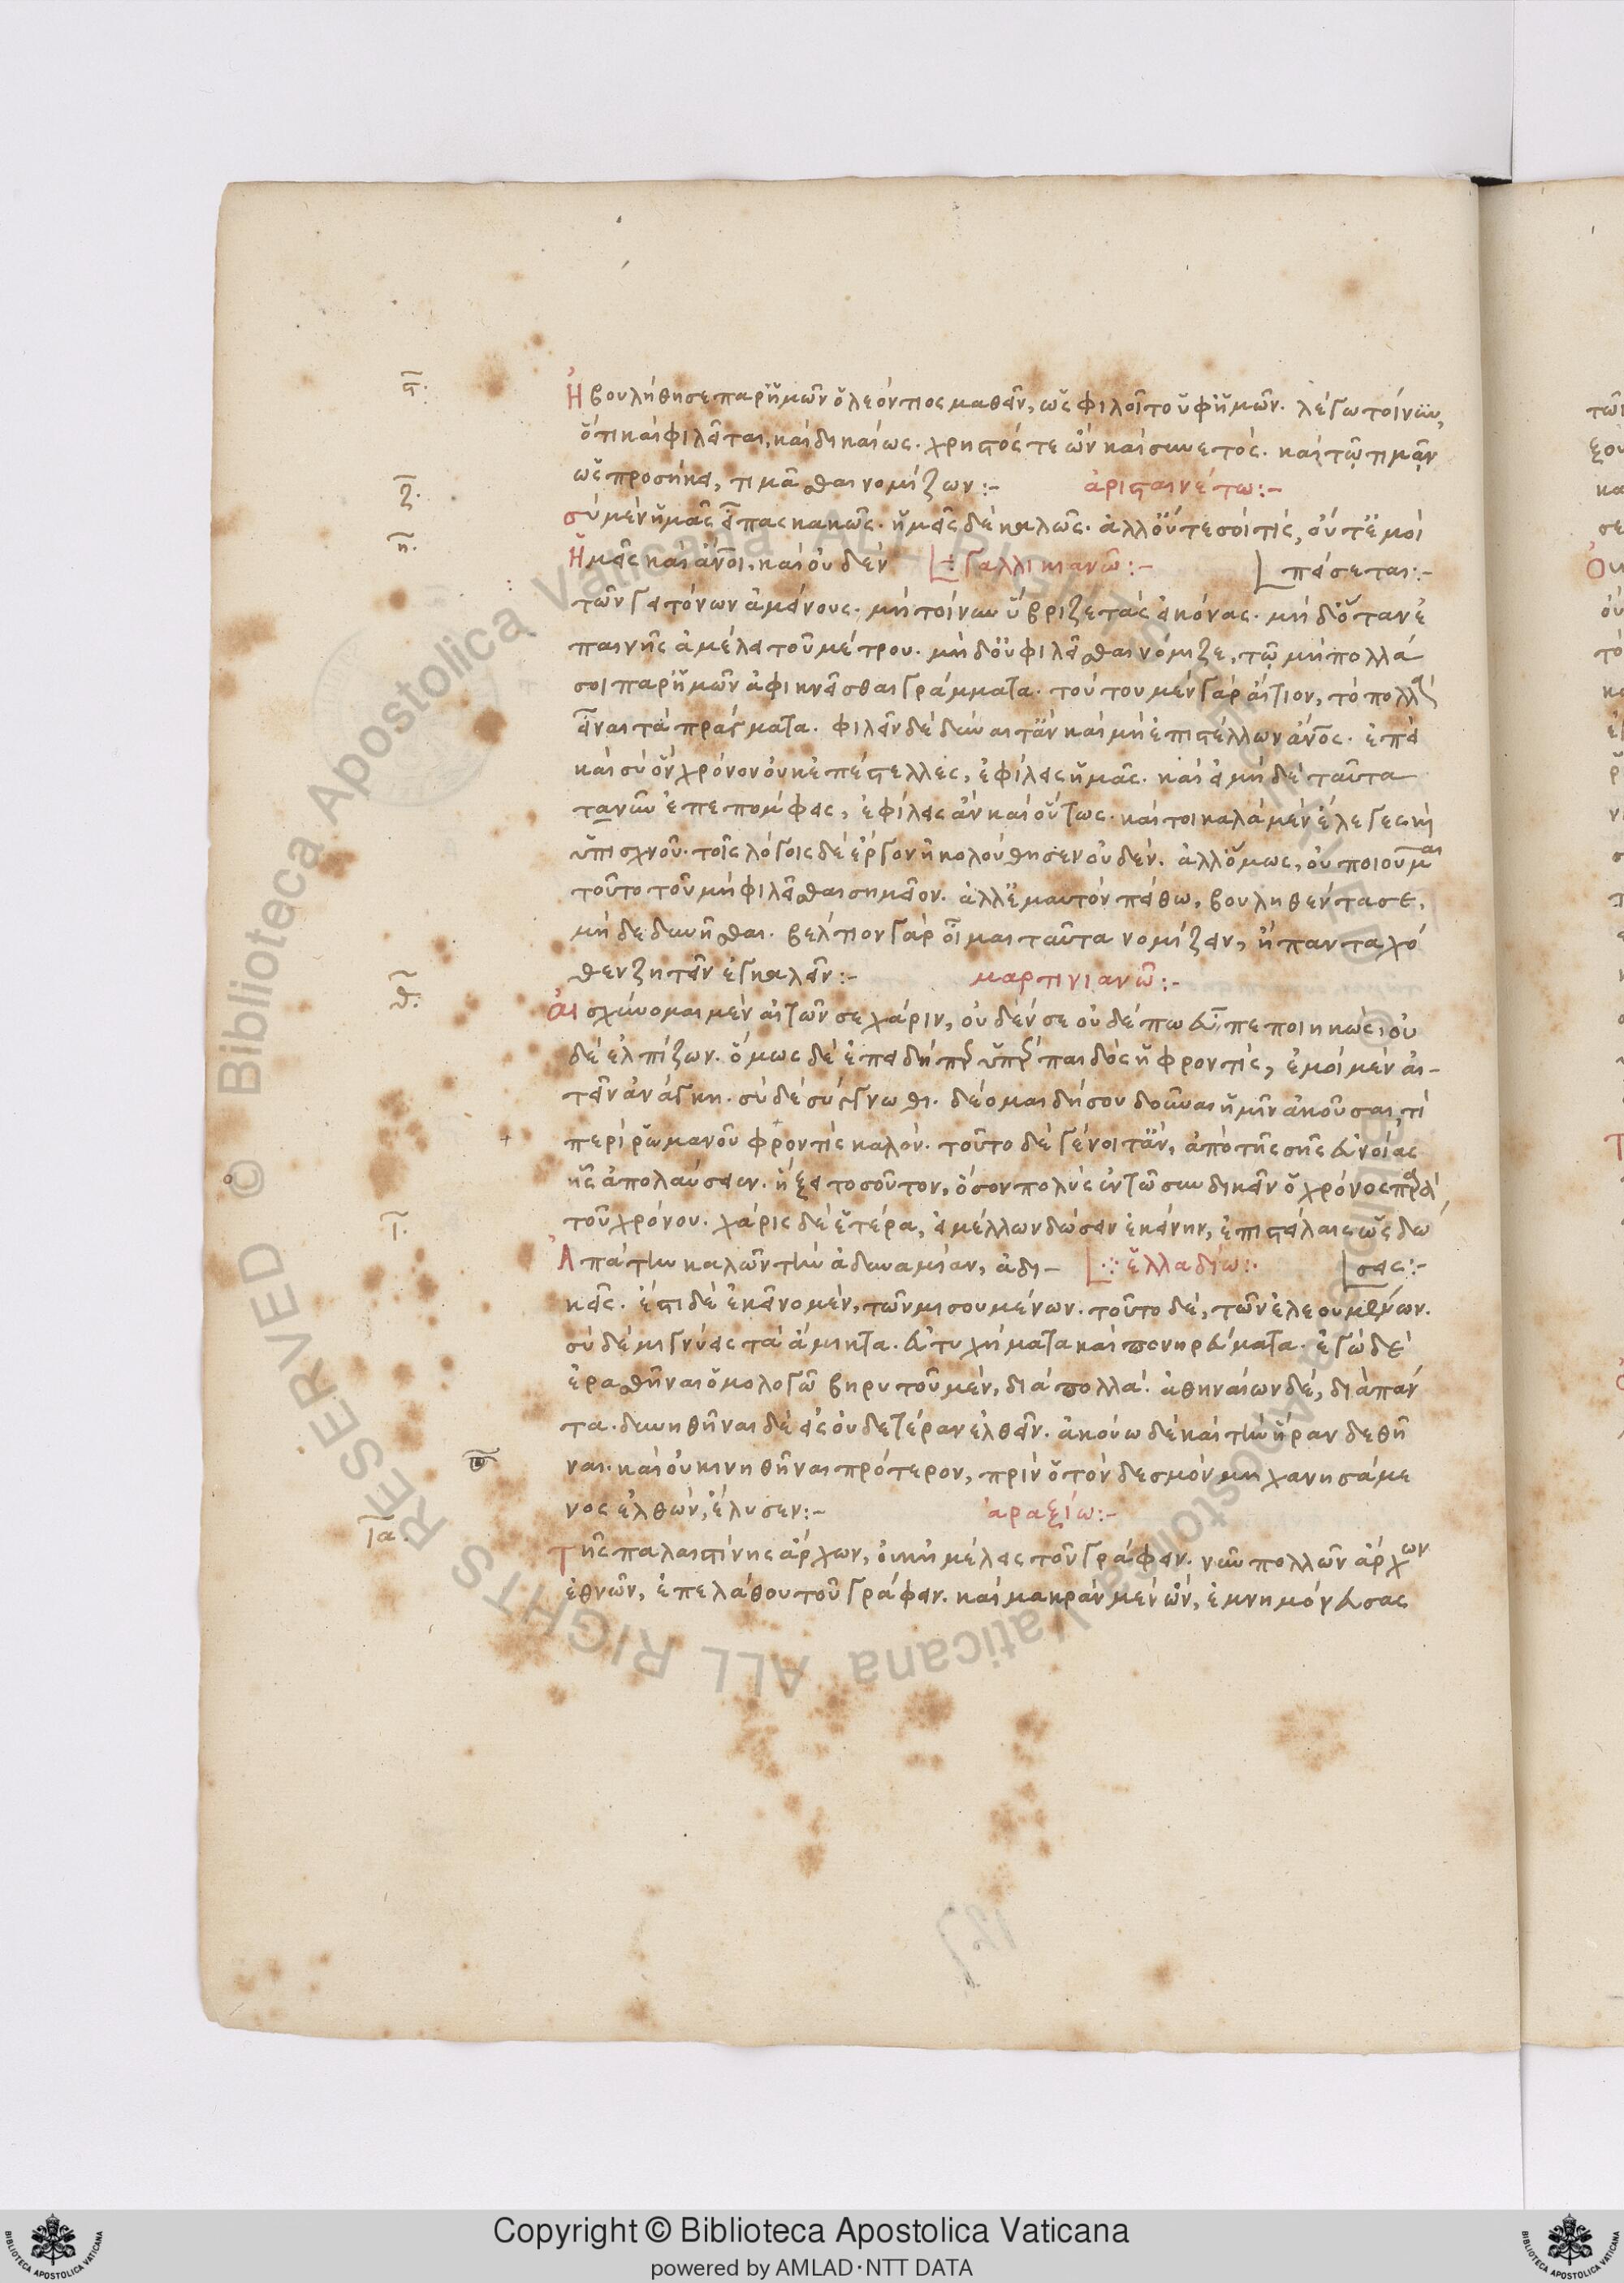 ς̅.
Ἠβουλήθησε παρ' ἡμῶν ὁ λεόντιος μαθεῖν, ὡς φιλοῖτο ὑφ' ἡμῶν. λέγω τοίνυν,
ὅτι καὶ φιλεῖται, καὶ δικαίως. χρηστός τε ὢν καὶ συνετός. καὶ τῷ τιμᾶν
ὡς προσῆκε, τιμᾶσθαι νομίζων:-   ἀρισταινέτω:-
ζ̅.
σὺ μὲν ἡμᾶς εἶπας κακῶς. ἡμεῖς δὲ καλῶς. ἀλλ' οὔτε σοί τις, οὔτ' ἐμοὶ
η̅.
Ἡμεῖς καὶ ἄνοι, καὶ οὐδὲν   γαλλικιανῶ:-   πείσεται:-
τῶν γειτόνων ἀμείνους. μὴ τοίνυν ὕβριζε τὰς εἰκόνας. μηδ' ὅταν ἐ
παινῇς ἀμέλει τοῦ μέτρου. μηδ' οὐ φιλεῖσθαι νόμιζε, τῷ μὴ πολλά
σοι παρ' ἡμῶν ἀφικνεῖσθαι γράμματα. τούτου μὲν γὰρ αἴτιον, τὸ πολλὰ
εἶναι τὰ πράγματα. φιλεῖν δὲ δύναιτ' ἂν καὶ μὴ ἐπιστέλλων ἄνος. ἐπεὶ
καὶ σὺ ὃν χρόνον οὐκ ἐπέστελλες, ἐφίλεις ἡμᾶς. καὶ εἰ μηδὲ ταῦτα
τανῦν ἐπεπόμφεις, ἐφίλεις ἂν καὶ οὕτως. καίτοι καλὰ μὲν ἔλεγες καὶ
ὑπισχνοῦ. τοῖς λόγοις δὲ ἔργον ἠκολούθησεν οὐδέν. ἀλλ' ὅμως, οὐ ποιοῦμαι
τοῦτο τοῦ μὴ φιλεῖσθαι σημεῖον. ἀλλ' ἐμαυτὸν πείθω, βουληθέντα σε,
μὴ δεδυνῆσθαι. βέλτιον γὰρ οἶμαι ταῦτα νομίζειν, ἢ πανταχό
θεν ζητεῖν ἐγκαλεῖν:-   μαρτινιανῶ:-
θ̅.
Αἰσχύνομαι μὲν αἰτῶν σε χάριν, οὐδέν σε οὐδέπω εὖ πεποιηκώς, οὐ
δὲ ἐλπίζων. ὅμως δὲ ἐπειδὴ πρ̅ι ὑπὲρ παιδὸς ἡ φροντίς, ἐμοὶ μὲν αἰ-
τεῖν ἀνάγκη. σὺ δὲ σύγγνωθι. δέομαι δή σου δοῦναι ἡμῖν ἀκοῦσαι, τὶ
περὶ ῥωμανοῦ φροντὶς καλόν. τοῦτο δὲ γένοιτ' ἄν, ἀπὸ τῆς σῆς εὐνοίας
ἧς ἀπολαύσειν. ἥξει τοσοῦτον, ὅσον πολὺς ἐν τῷ συνδικεῖν ὁ χρόνος πρὸς
τοῦ χρόνου. χάρις δὲ ἑτέρα, εἰ μέλλων δώσειν ἐκείνην, ἐπιστείλαις ὡς δώ
ι̅.
Ἀπάτην καλῶν τὴν ἀδυναμίαν, ἀδι-   ἑλλαδίω:.   σεις:-
κεῖς. ἔστι δὲ ἐκεῖνο μέν, τῶν μισουμένων. τοῦτο δέ, τῶν ἐλεουμένων.
σὺ δὲ μιγνύεις τὰ ἄμικτα. εὐτυχήματα καὶ πονηρεύματα. ἐγὼ δὲ
ἐρασθῆναι ὁμολογῶ βηρυτοῦ μέν, διὰ πολλά. ἀθηναίων δέ, διὰ πάν
τα. δυνηθῆναι δὲ εἰς οὐδετέραν ἐλθεῖν. ἀκούω δὲ καὶ τὴν ἥραν δεθῆ
ναι. καὶ οὐ κινηθῆναι πρότερον, πρὶν ὁ τὸν δεσμὸν μηχανησάμε
νος ἐλθών, ἔλυσεν:-   ἀραξίω:-
ια̅.
Τῆς παλαιστίνης ἄρχων, οὐκ ἠμέλεις τοῦ γράφειν. νῦν πολλῶν ἄρχων
ἐθνῶν, ἐπελάθου τοῦ γράφειν. καὶ μακρὰν μὲν ὤν, ἐμνημόνευσας
Copyright © Biblioteca Apostolica Vaticana
powered by AMLAD·NTT DATA